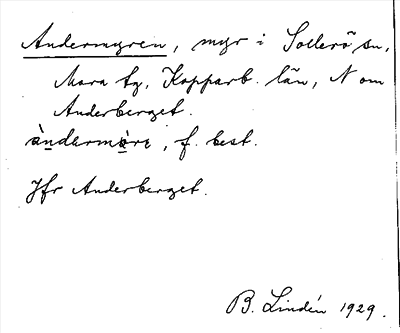 Andermyren, myr i Sollerö sn,
Mora tg, Kopparb. län, N om
Anderberget.
f. best.
Jfr Anderberget.
B. Lindén 1929.